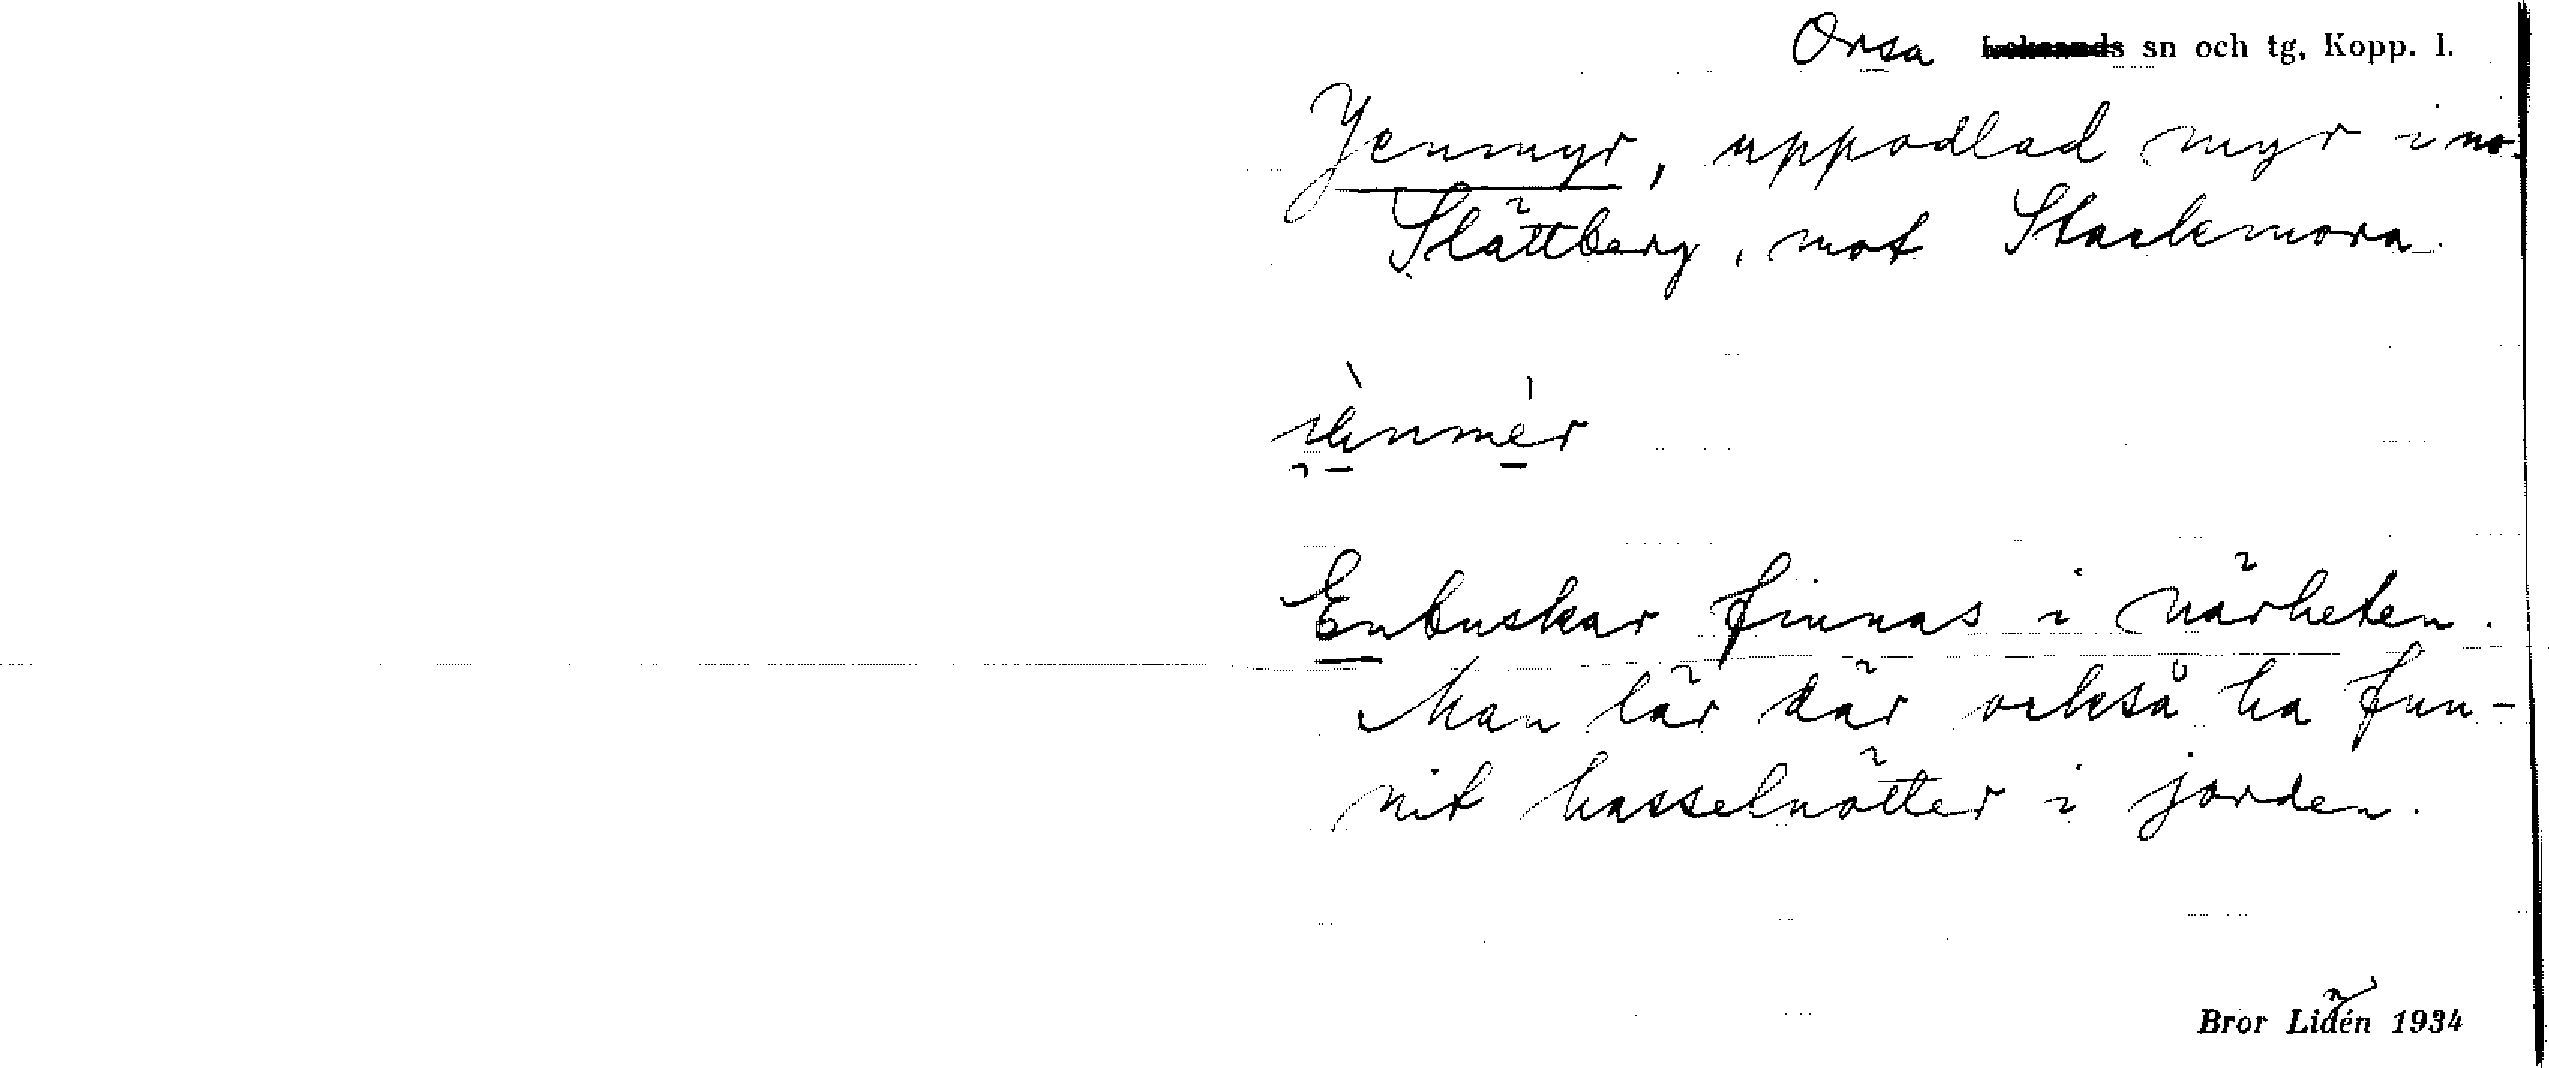 Orsa sn och tg, Kopp. l.
Jenmyr, uppodlad myr i no.
Slättberg, mot Stackmora.
Enbuskar finnas i närheten.
Man lär där också ha fun-
nit hasselnötter i jorden.
Bror Lidén 1934